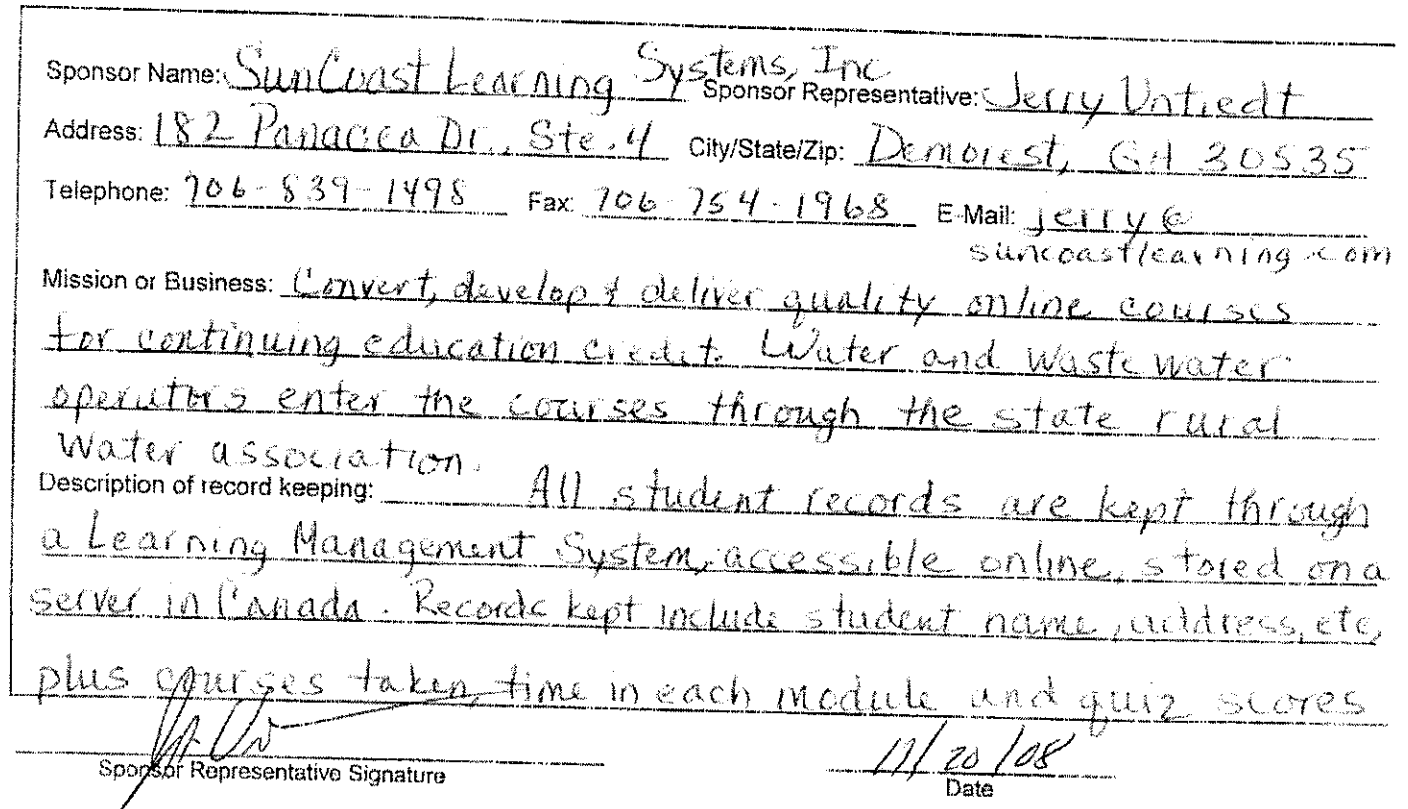 Sponsor Name: SunCoast Learning Systems, Inc Sponsor Representative: Jerry Untiedt
Address: 182 Panacea Dr., Ste. 4 City/State/Zip: Demorest, GA 30535
Telephone: 706-839-1498 Fax: 706-754-1968 E-Mail: jerry@
suncoastlearning.com
Mission or Business: Convert, develop & deliver quality online courses
for continuing education credit. Water and wastewater
operators enter the courses through the state rural
water association.
Description of record keeping: All student records are kept through
a Learning Management System, accessible online, stored on a
server in Canada. Records kept include student name, address, etc,
plus courses taken, time in each module and quiz scores
Sponsor Representative Signature
/20/08
Date